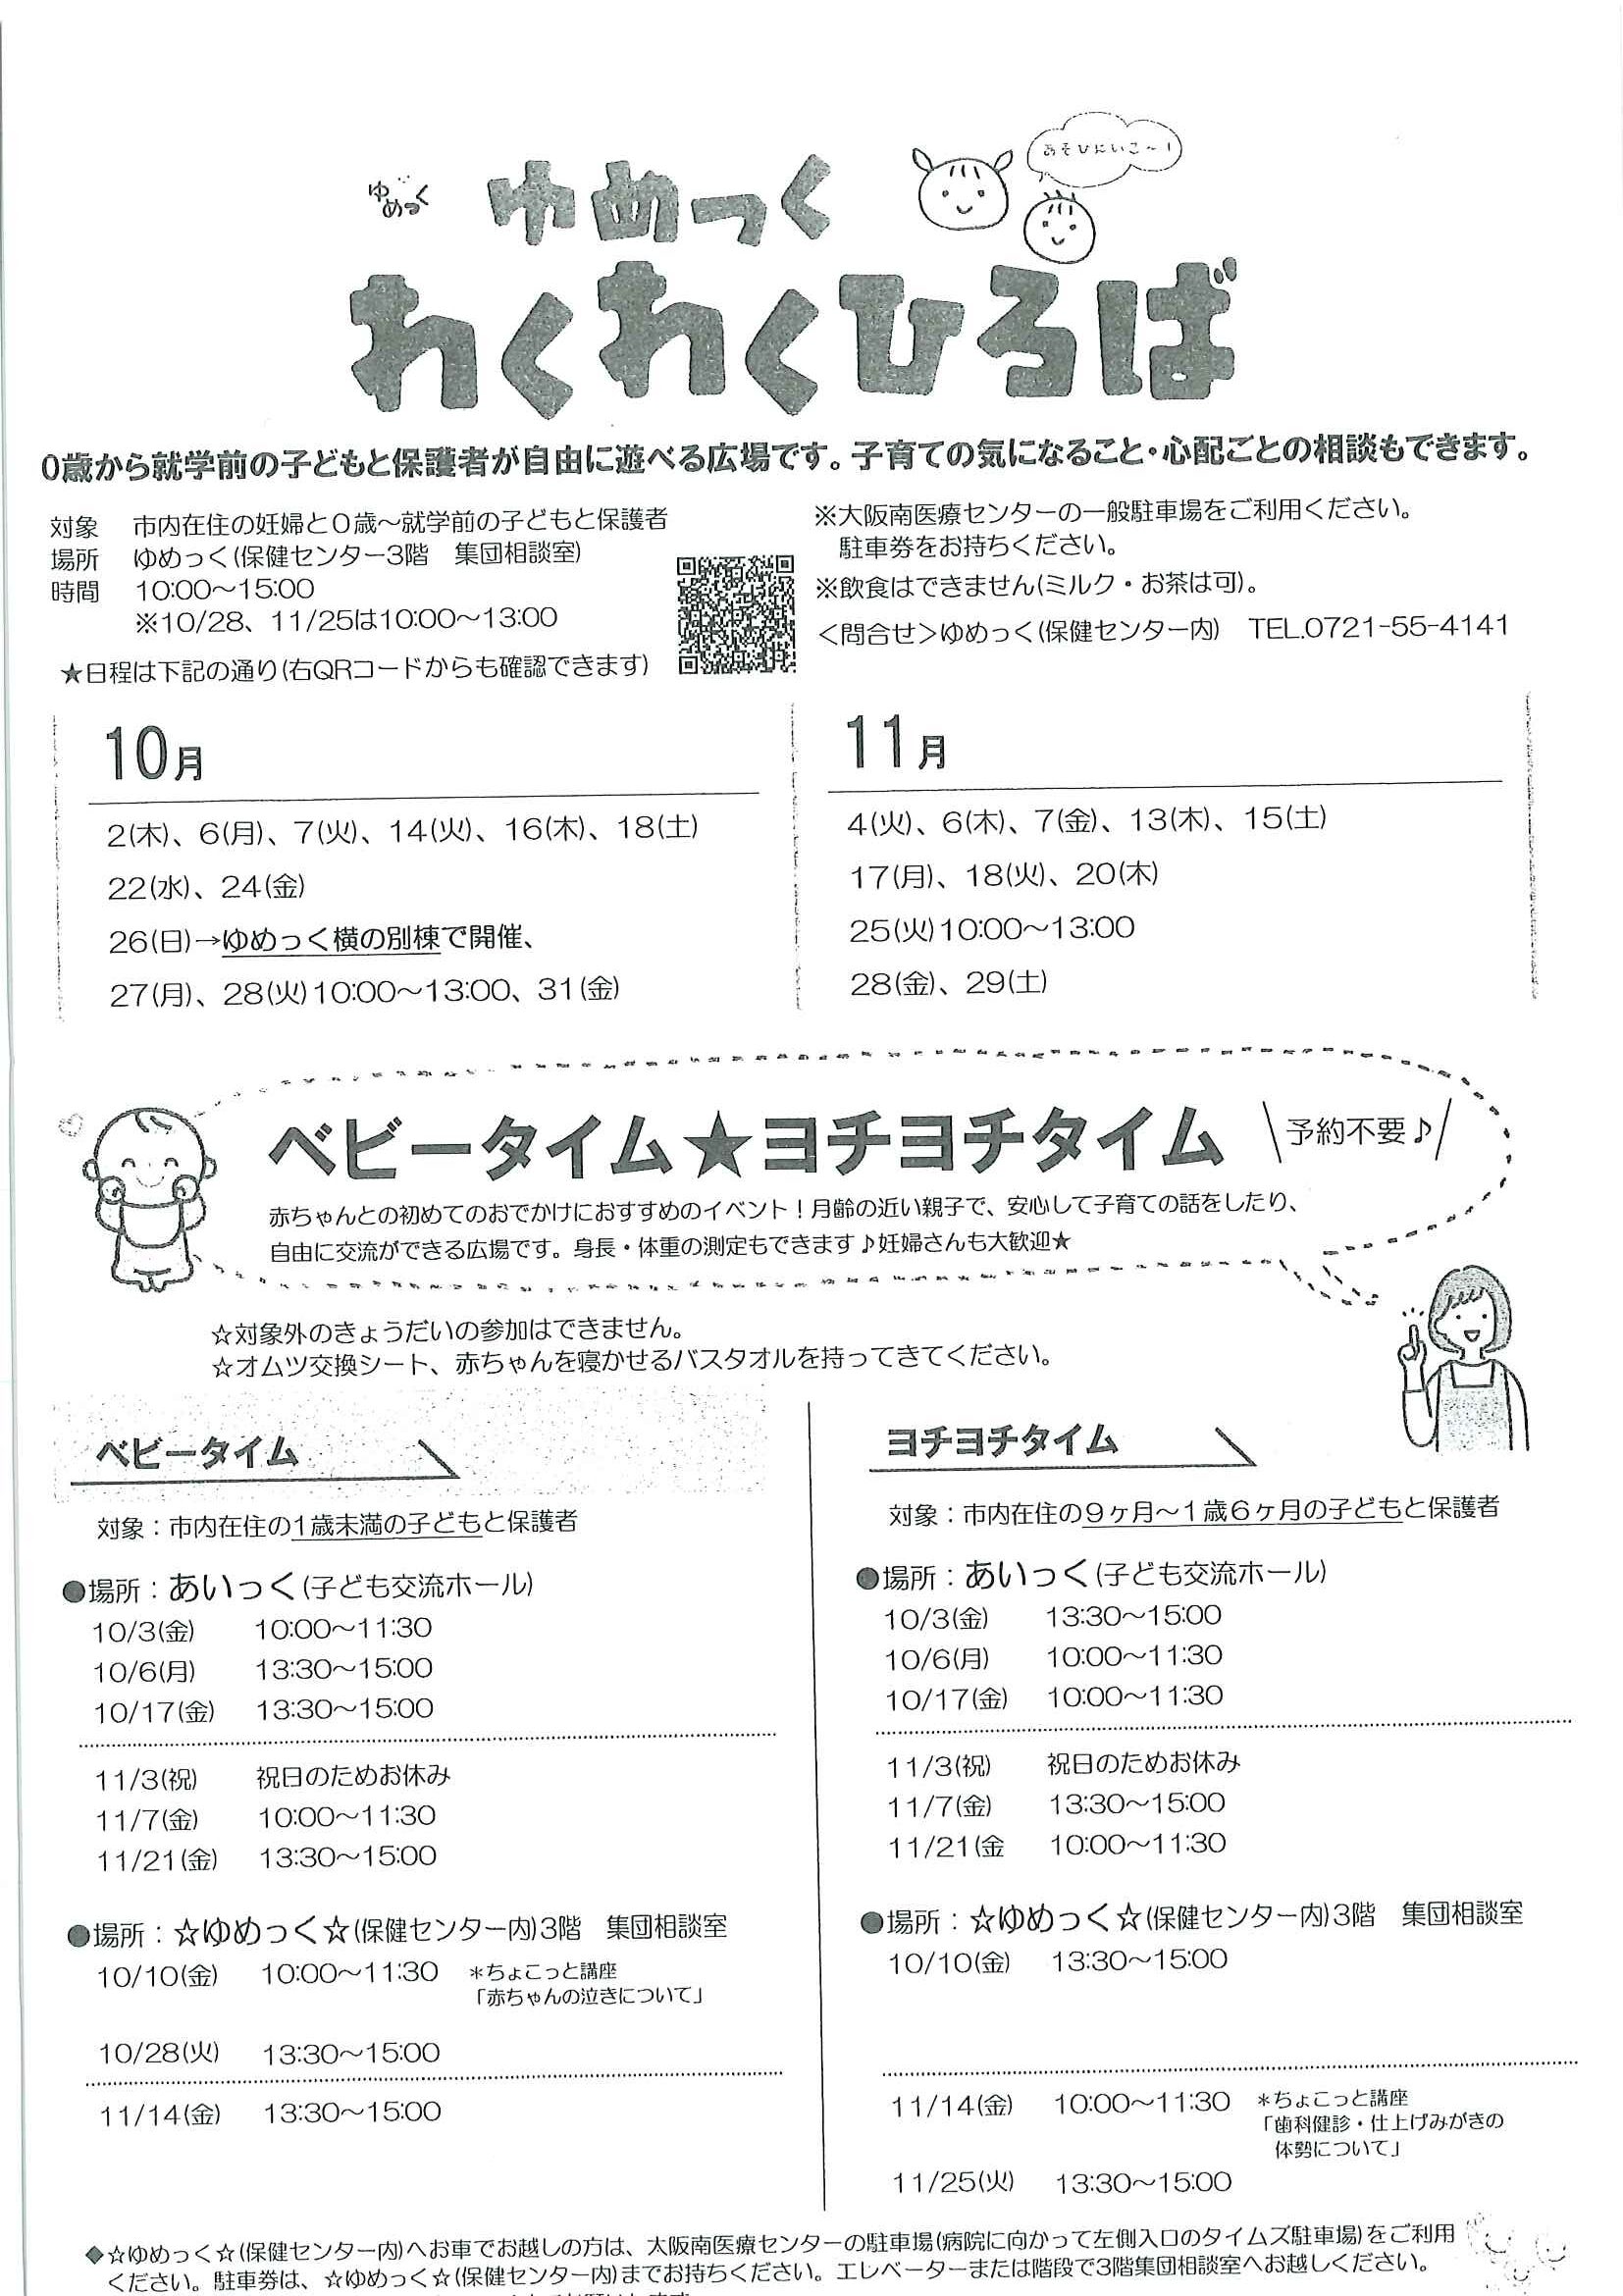 ゆめっく
あそびにいこ～！
ゆめっく
わくわくひろば
0歳から就学前の子どもと保護者が自由に遊べる広場です。子育ての気になること・心配ごとの相談もできます。
対象　市内在住の妊婦と０歳～就学前の子どもと保護者
場所　ゆめっく(保健センター3階　集団相談室)
時間　10:00～15:00
※10/28、11/25は10:00～13:00
★日程は下記の通り(右QRコードからも確認できます)
※大阪南医療センターの一般駐車場をご利用ください。
駐車券をお持ちください。
※飲食はできません(ミルク・お茶は可)。
＜問合せ＞ゆめっく(保健センター内)　TEL.0721-55-4141
10月
2(木)、6(月)、7(火)、14(火)、16(木)、18(土)
22(水)、24(金)
26(日)→ゆめっく横の別棟で開催、
27(月)、28(火)10:00～13:00、31(金)
11月
4(火)、6(木)、7(金)、13(木)、15(土)
17(月)、18(火)、20(木)
25(火)10:00～13:00
28(金)、29(土)
ベビータイム★ヨチヨチタイム
予約不要♪
赤ちゃんとの初めてのおでかけにおすすめのイベント！月齢の近い親子で、安心して子育ての話をしたり、
自由に交流ができる広場です。身長・体重の測定もできます♪妊婦さんも大歓迎★
☆対象外のきょうだいの参加はできません。
☆オムツ交換シート、赤ちゃんを寝かせるバスタオルを持ってきてください。
ベビータイム
対象：市内在住の1歳未満の子どもと保護者
●場所：あいっく(子ども交流ホール)
10/3(金)　10:00～11:30
10/6(月)　13:30～15:00
10/17(金)　13:30～15:00
11/3(祝)　祝日のためお休み
11/7(金)　10:00～11:30
11/21(金)　13:30～15:00
●場所：☆ゆめっく☆(保健センター内)3階　集団相談室
10/10(金)　10:00～11:30　＊ちょこっと講座
「赤ちゃんの泣きについて」
10/28(火)　13:30～15:00
11/14(金)　13:30～15:00
ヨチヨチタイム
対象：市内在住の９ヶ月～１歳６ヶ月の子どもと保護者
●場所：あいっく(子ども交流ホール)
10/3(金)　13:30～15:00
10/6(月)　10:00～11:30
10/17(金)　10:00～11:30
11/3(祝)　祝日のためお休み
11/7(金)　13:30～15:00
11/21(金　10:00～11:30
●場所：☆ゆめっく☆(保健センター内)3階　集団相談室
10/10(金)　13:30～15:00
11/14(金)　10:00～11:30　＊ちょこっと講座
「歯科健診・仕上げみがきの
体勢について」
11/25(火)　13:30～15:00
◆☆ゆめっく☆(保健センター内)へお車でお越しの方は、大阪南医療センターの駐車場(病院に向かって左側入口のタイムズ駐車場)をご利用
ください。駐車券は、☆ゆめっく☆(保健センター内)までお持ちください。エレベーターまたは階段で3階集団相談室へお越しください。